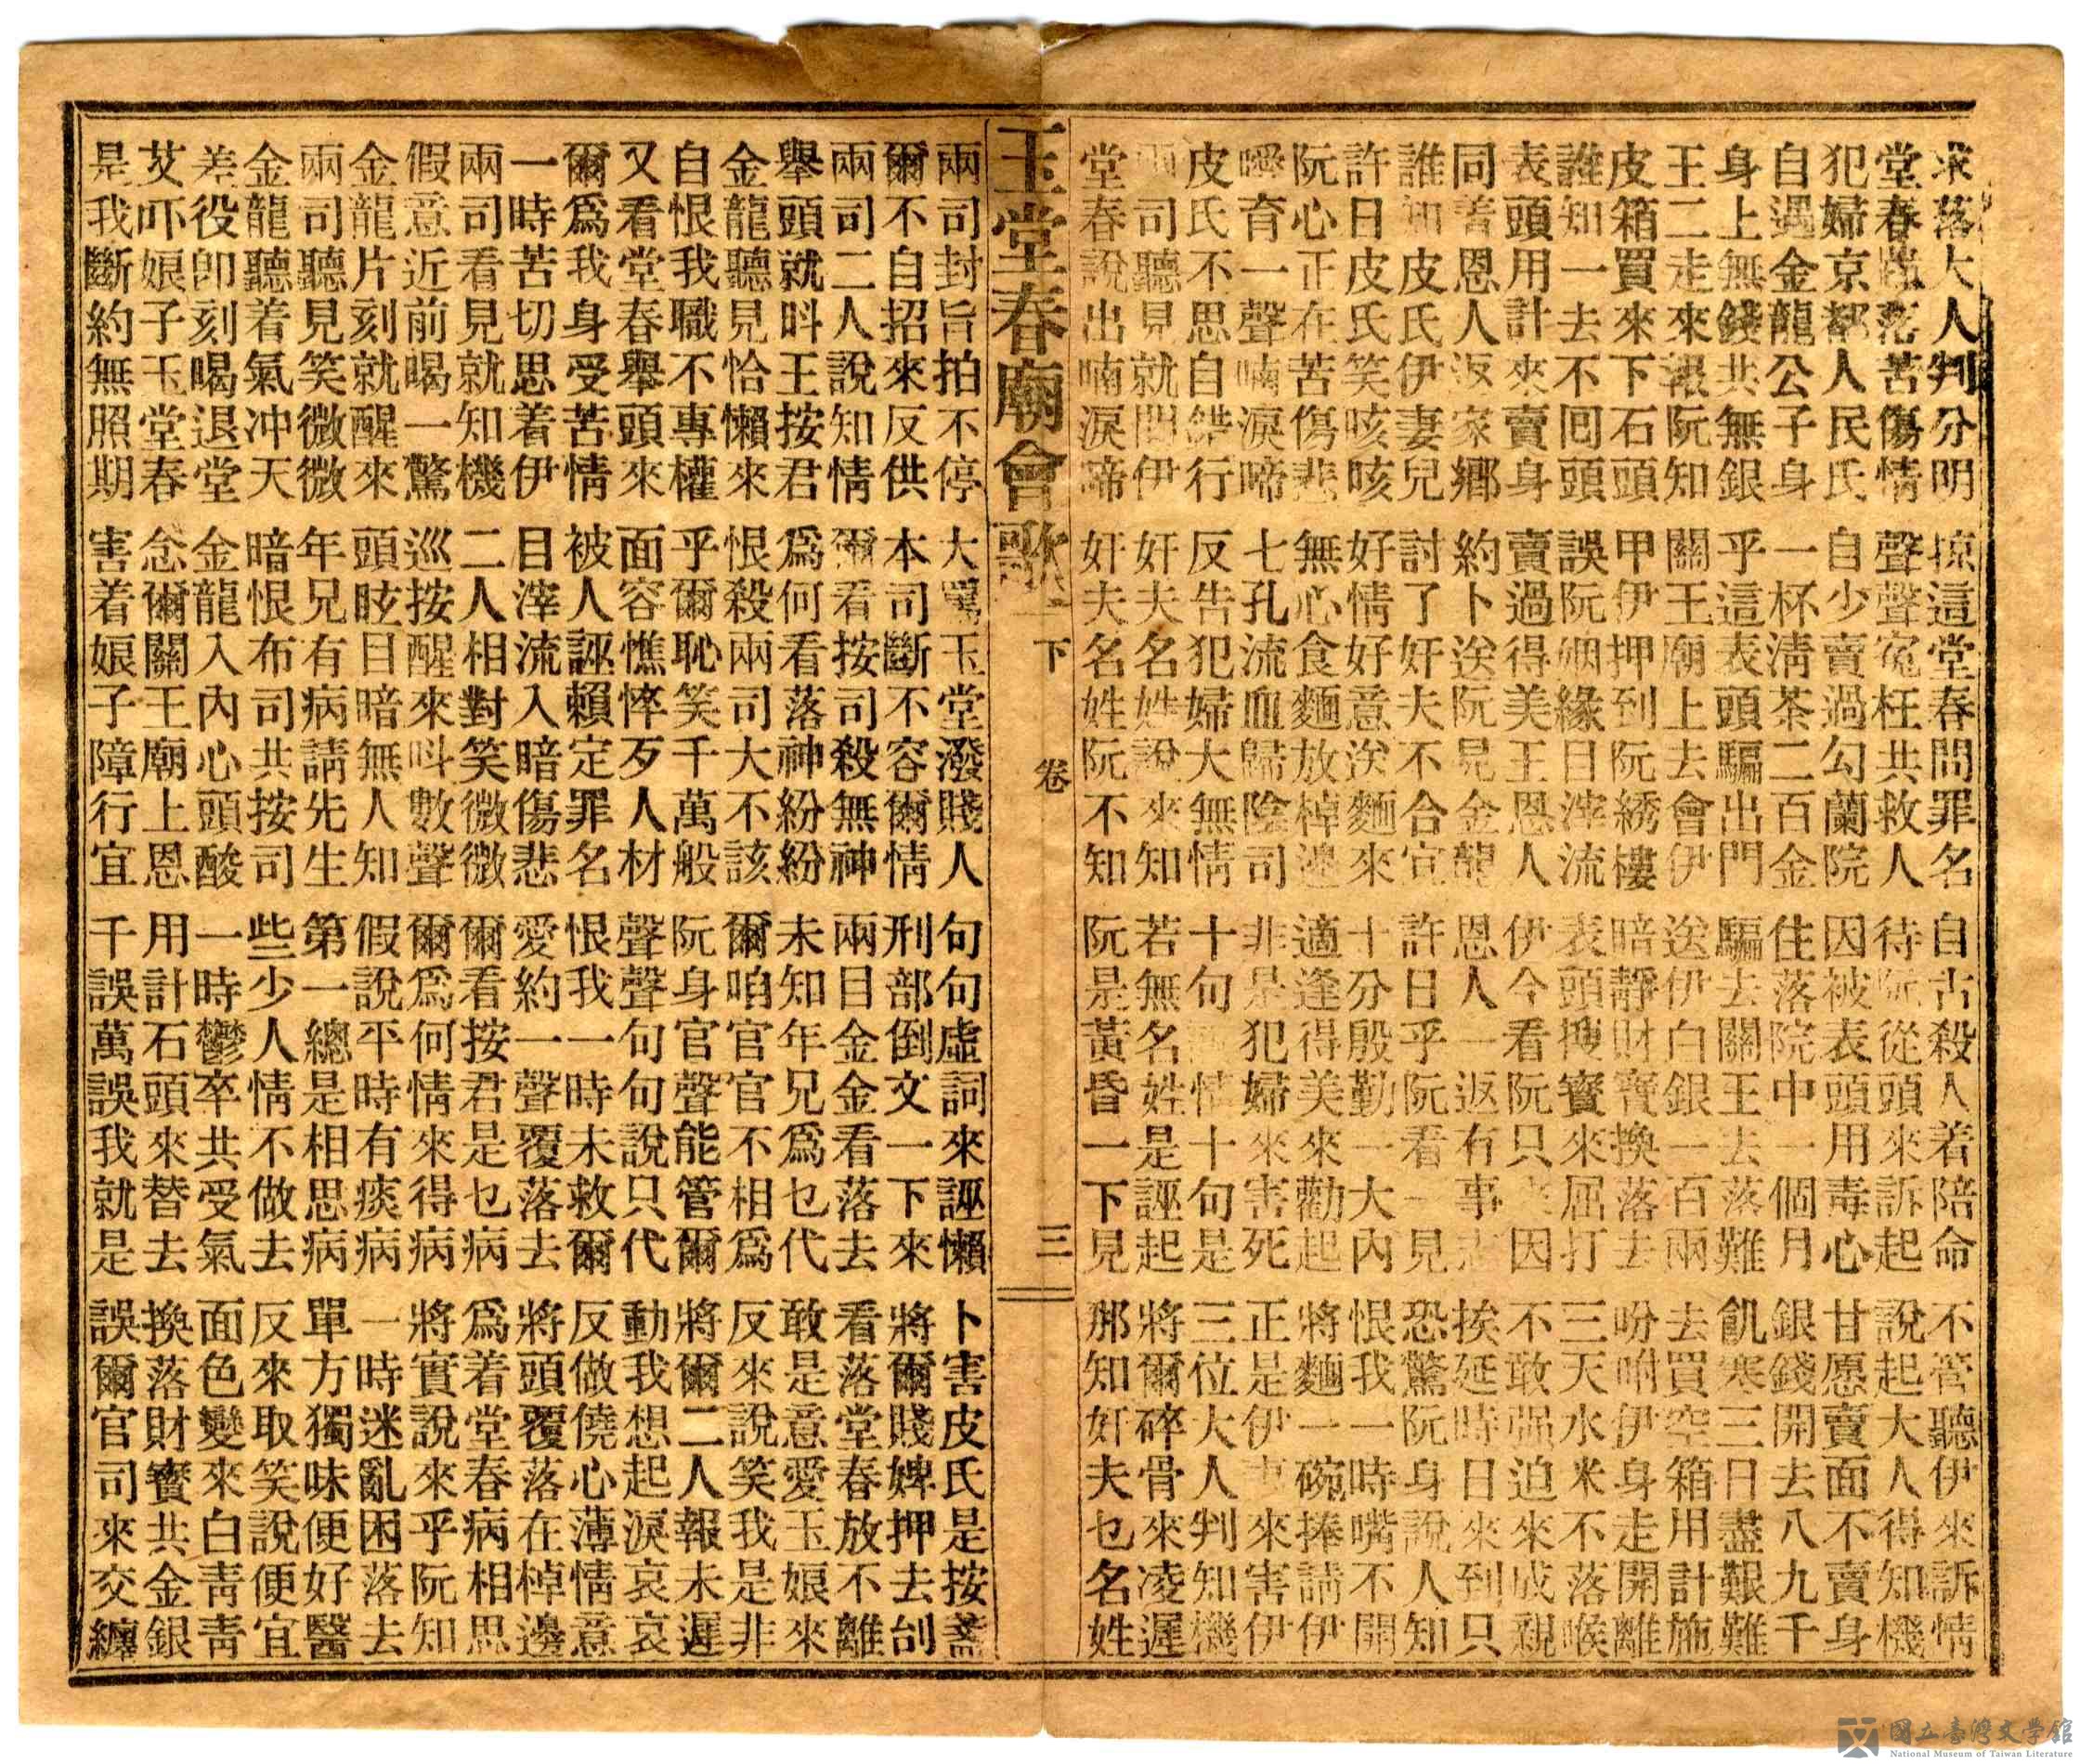 求落大人判分明 掠這堂春問罪名 自古殺人着陪命 不管聽伊來訴情
堂春跪落苦傷情 聲聲冤枉共救人 待阮從頭來訴起 說起大人得知機
犯婦京都人民氏 自少賣過勾蘭院 因被表頭用毒心 甘愿賣面不賣身
自遇金龍公子身 一杯淸茶二百金 住落院中一個月 銀錢開去八九千
身上無錢共無銀 乎這表頭騙出門 騙去關王去落難 飢寒三日盡艱難
王二走來報阮知 關王廟上去會伊 送伊白銀一百兩 去買空箱用計施
皮箱買來下石頭 甲伊押到阮綉樓 暗靜財寶換落去 吩咐伊身走開離
誰知一去不囘頭 誤阮姻緣目滓流 表頭搜寳來屈打 三天水米不落喉
表頭用計來賣身 賣過得美王恩人 伊今看阮只因 不敢强迫來成親
同善恩人返家鄉 約卜送阮見金龍 恩人一返有事志 挨延時日來到只
誰知皮氏伊妻兒 討了奸夫不合宜 許日乎阮看一見 恐驚阮身說人知
許日皮氏笑咳咳 好情好意送麵來 十分殷勤一大內 恨我一時嘴不開
阮心正在苦傷悲 無心食麵放棹邊 適逢得美來勸起 將麵一碗捧請伊
噯育一聲喃淚啼 七孔流血歸陰司 非是犯婦來害死 正是伊來害伊
皮氏不思自錯行 反告犯婦大無情 十句情十句是 三位大人判知機
兩司聽見就問伊 奸夫名姓說來知 若無名姓是誣起 將爾碎骨來凌遲
堂春說出喃淚啼 奸夫名姓阮不知 阮是黃昏一下見 那知奸夫乜名姓
玉堂春廟會歌 下 卷 三
兩司封旨拍不停 大罵玉堂潑賤人 句句虛詞來誣懶 卜害皮氏是按盞
爾不自招來反供 本司斷不容爾情 刑部倒文一下來 將爾賤婢押去刣
兩司二人說知情 爾看按司殺無神 兩目金金看落去 看落堂春放不離
舉頭就呌王按君 爲何看落神紛紛 未知年兄爲乜代 敢是意愛玉娘來
金龍聽見恰懶來 恨殺兩司大不該 爾咱官官不相爲 反來說笑我是非
自恨我職不專權 乎爾恥笑千萬般 阮身官聲能管爾 將爾二人報未遲
又看堂春舉頭來 面容憔悴歹人材 聲聲句句說只代 動我想起淚哀哀
爾爲我身受苦情 被人誣賴定罪名 恨我一時未救爾 反做僥心薄情意
一時苦切思着伊 目滓流入暗傷悲 愛約一聲覆落去 將頭覆落在棹邊
兩司看見就知機 二人相對笑微微 爾看按君是乜病 爲着堂春病相思
假意近前喝一驚 巡按醒來呌數聲 爾爲何情來得病 將實說來乎阮知
金龍片刻就醒來 頭眩目暗無人知 假說平時有痰病 一時迷亂困落去
兩司聽見笑微微 年兄有病請先生 第一總是相思病 單方獨味便好醫
金龍聽着氣冲天 暗恨布司共按司 些少人情不做去 反來取笑說便宜
差役卽刻喝退堂 金龍入內心頭酸 一時鬱卒共受氣 面色變來白靑靑
艾吓娘子玉堂春 念爾關王廟上恩 用計石頭來替去 換落財寳共金銀
是我斷約無照期 害着娘子障行宜 千誤萬誤我就是 誤爾官司來交纏
國立臺灣文學館
National Museum of Taiwan Literature